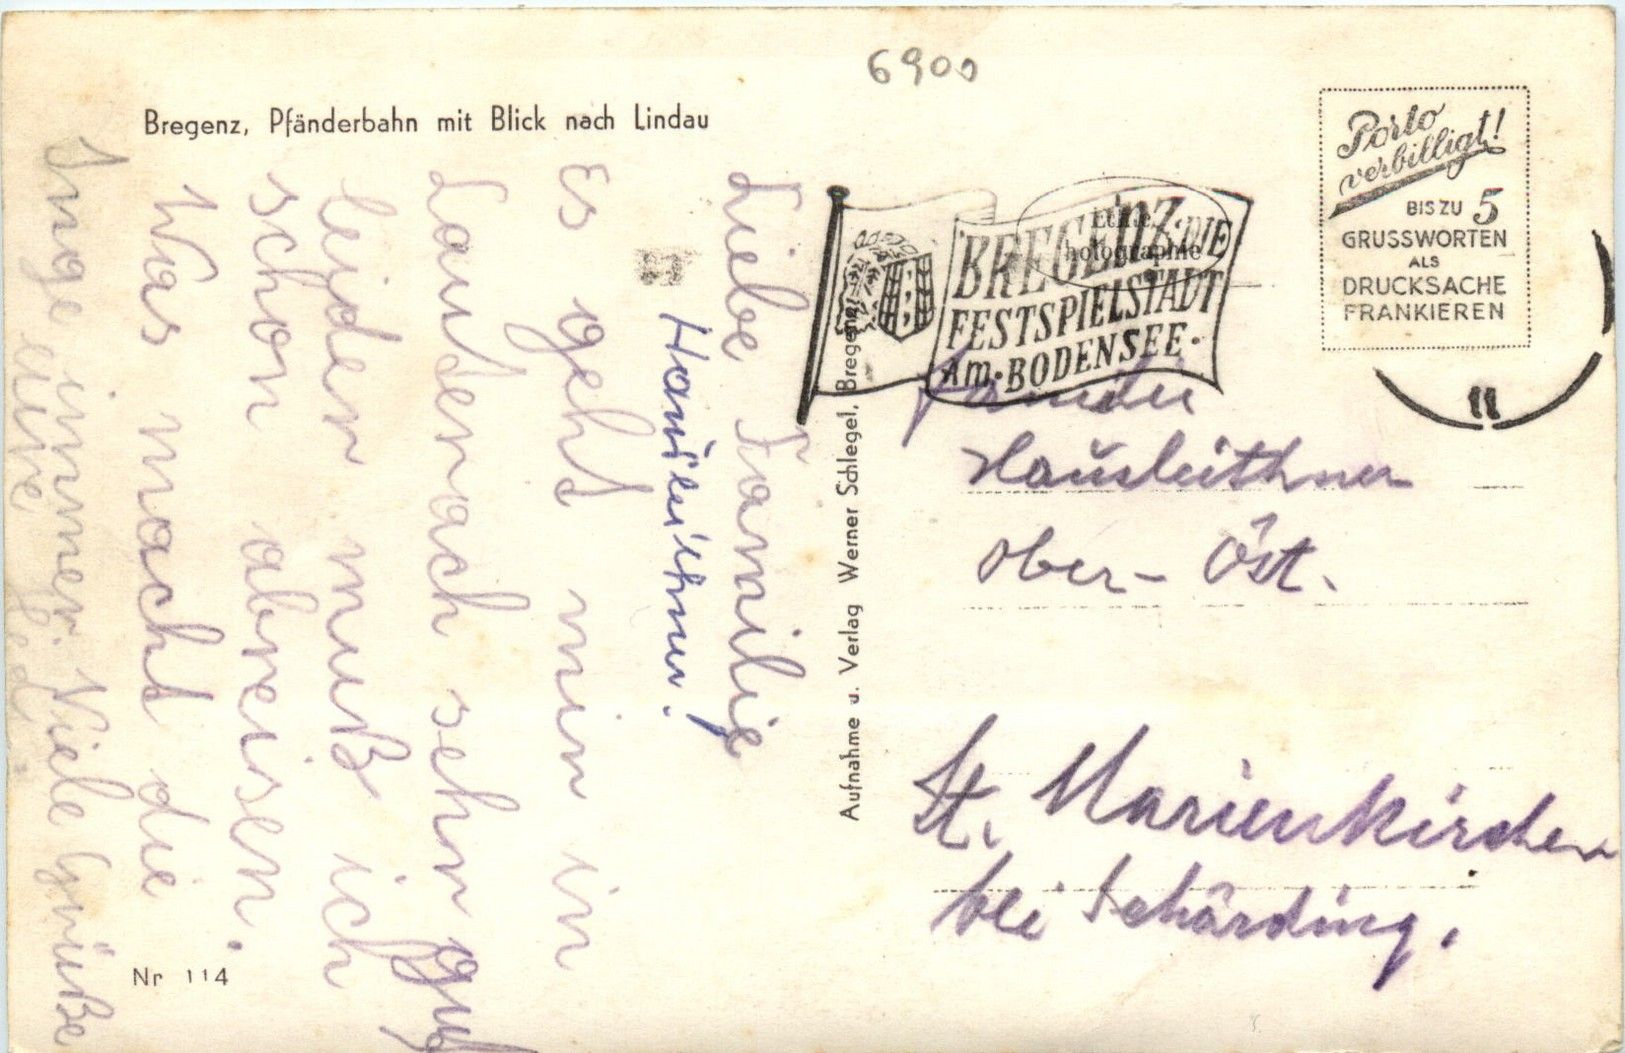 6900
Bregenz, Pfänderbahn mit Blick nach Lindau
Liebe Familie
Hausleithner.
Es geht mir in
Lauterach sehr gut
leider muß ich
schon abreisen.
Was macht die
Inge immer. Viele Grüße
eure
Nr 114
Aufnahme u. Verlag Werner Schlegel, Bregenz
BREGENZ·DIE
FESTSPIELSTADT
Am·BODENSEE·
Echte
hotographie
Porto
verbilligt!
BIS ZU 5
GRUSSWORTEN
ALS
DRUCKSACHE
FRANKIEREN
11
Familie
Hausleithner
Ober- Öst.
St. Marienkirchen
bei Schärding.